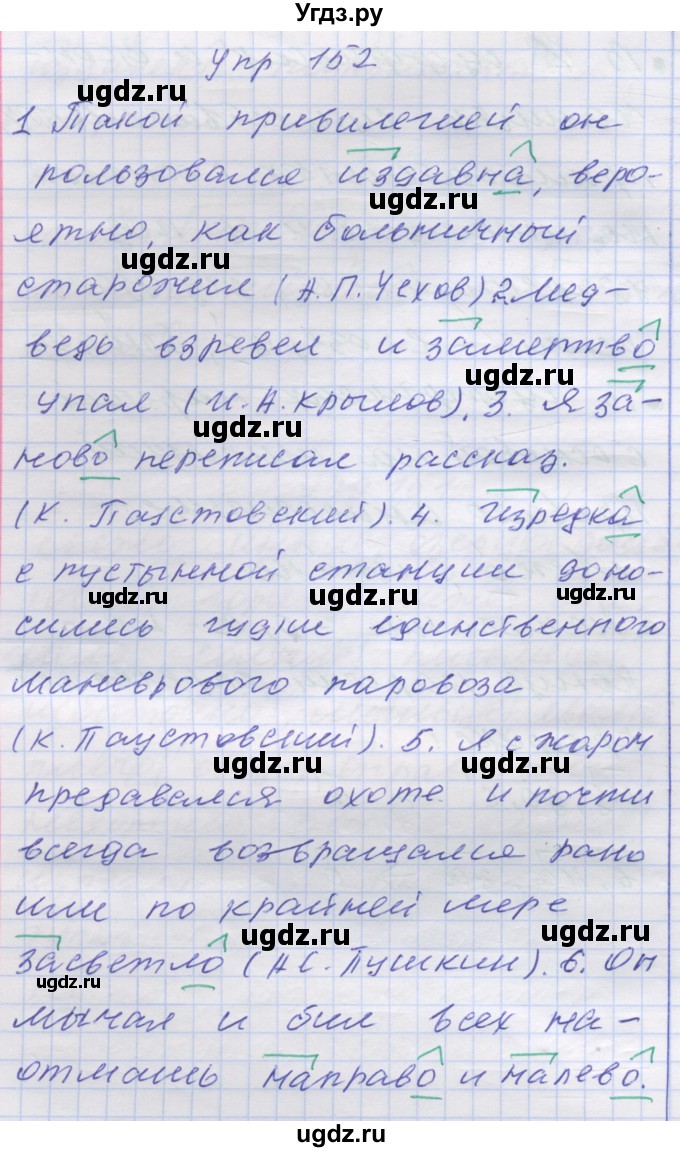 Угдз.ру
Упр 152
ugdz.ru
1 Такой привилегией он
пользовался издавна, веро-
ugdz.ru
ятно, как больничный
ugdz.ru
старожил (А.П.Чехов) 2. Мед-
ведь взревел и замертво
ugdz.ru
упал (И.А.Крылов). 3. Я за-
ugdz.ru
ново переписал рассказ.
(К. Паустовский). 4. Изредка
с пустынной станции доно-
ugdz.ru ugdz.ru ugdz.ru
сились гудки единственного
маневрового паровоза
(К. Паустовский). 5. Я с жаром
ugdz.ru ugdz.ru
предавался охоте и почти
всегда возвращался рано
или по крайней мере
ugdz.ru ugdz.ru
засветло (А.С. Пушкин). 6. Он
ugdz.ru
мычал и бил всех на-
отмашь направо и налево.
ugdz.ru ugdz.ru
ugdz.ru